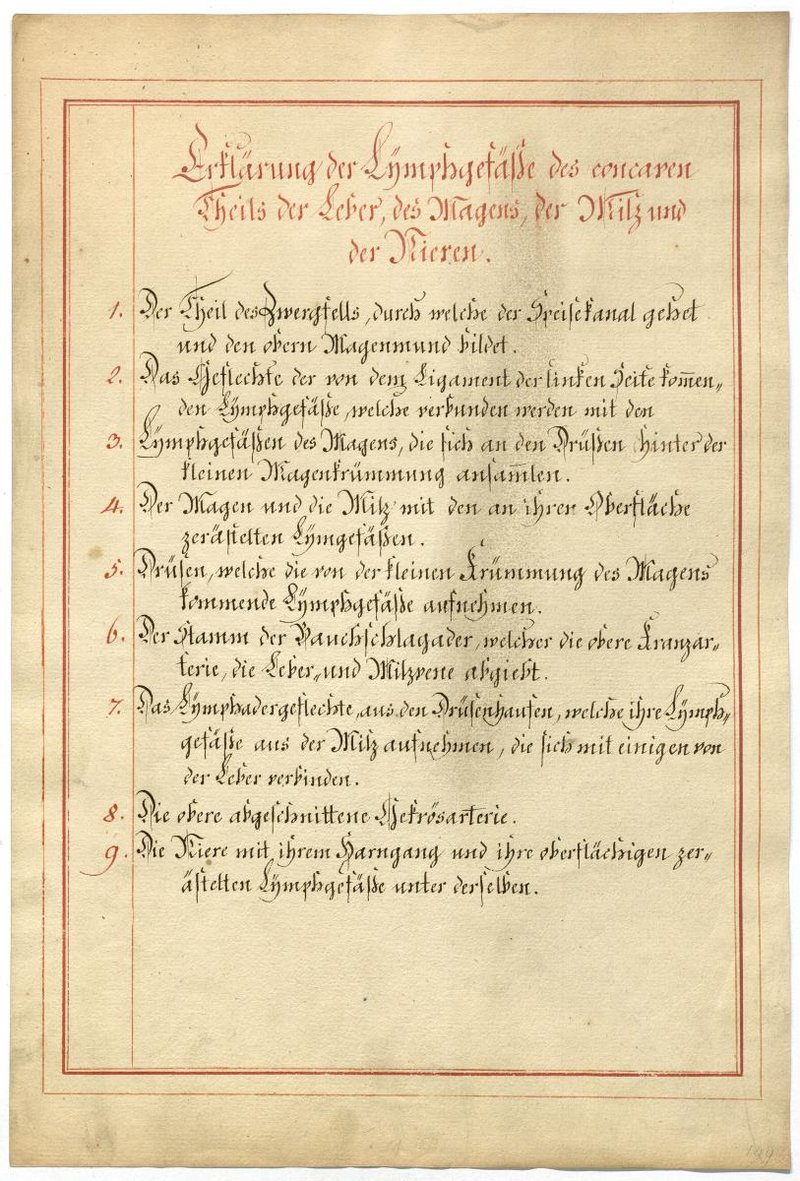 Erklärung der Lÿmphgefäße des concaven
Theils der Leber, des Magens, der Milz und
der Nieren.
1. Der Theil des Zwergfells, durch welche der Speisekanal gehet
und den obern Magenmund bildet.
2. Das Geflechte der von dem Ligament der linken Seite kom̅en„
den Lÿmphgefäße, welche verbunden werden mit den
3. Lÿmphgefäßen des Magens, die sich an den Drüßen hinter der
kleinen Magenkrümmung ansam̅len.
4. Der Magen und die Milz mit den an ihren Oberfläche
zerästelten Lÿmgefäßen.
5. Drüsen, welche die von der kleinen Krümmung des Magens
kommende Lÿmphgefäße aufnehmen.
6. Der Stamm der Bauchschlagader, welcher die obere Kranzar„
terie, die Leber„und Milzvene abgiebt.
7. Das Lÿmphadergeflechte, aus den Drüsenhaufen, welche ihre Lÿmph„
gefäße aus der Milz aufnehmen, die sich mit einigen von
der Leber verbinden.
8. Die obere abgeschnittene Gekrösarterie.
9. Die Niere mit ihrem Harngang und ihre oberflächigen zer„
ästelten Lÿmphgefäße unter derselben.